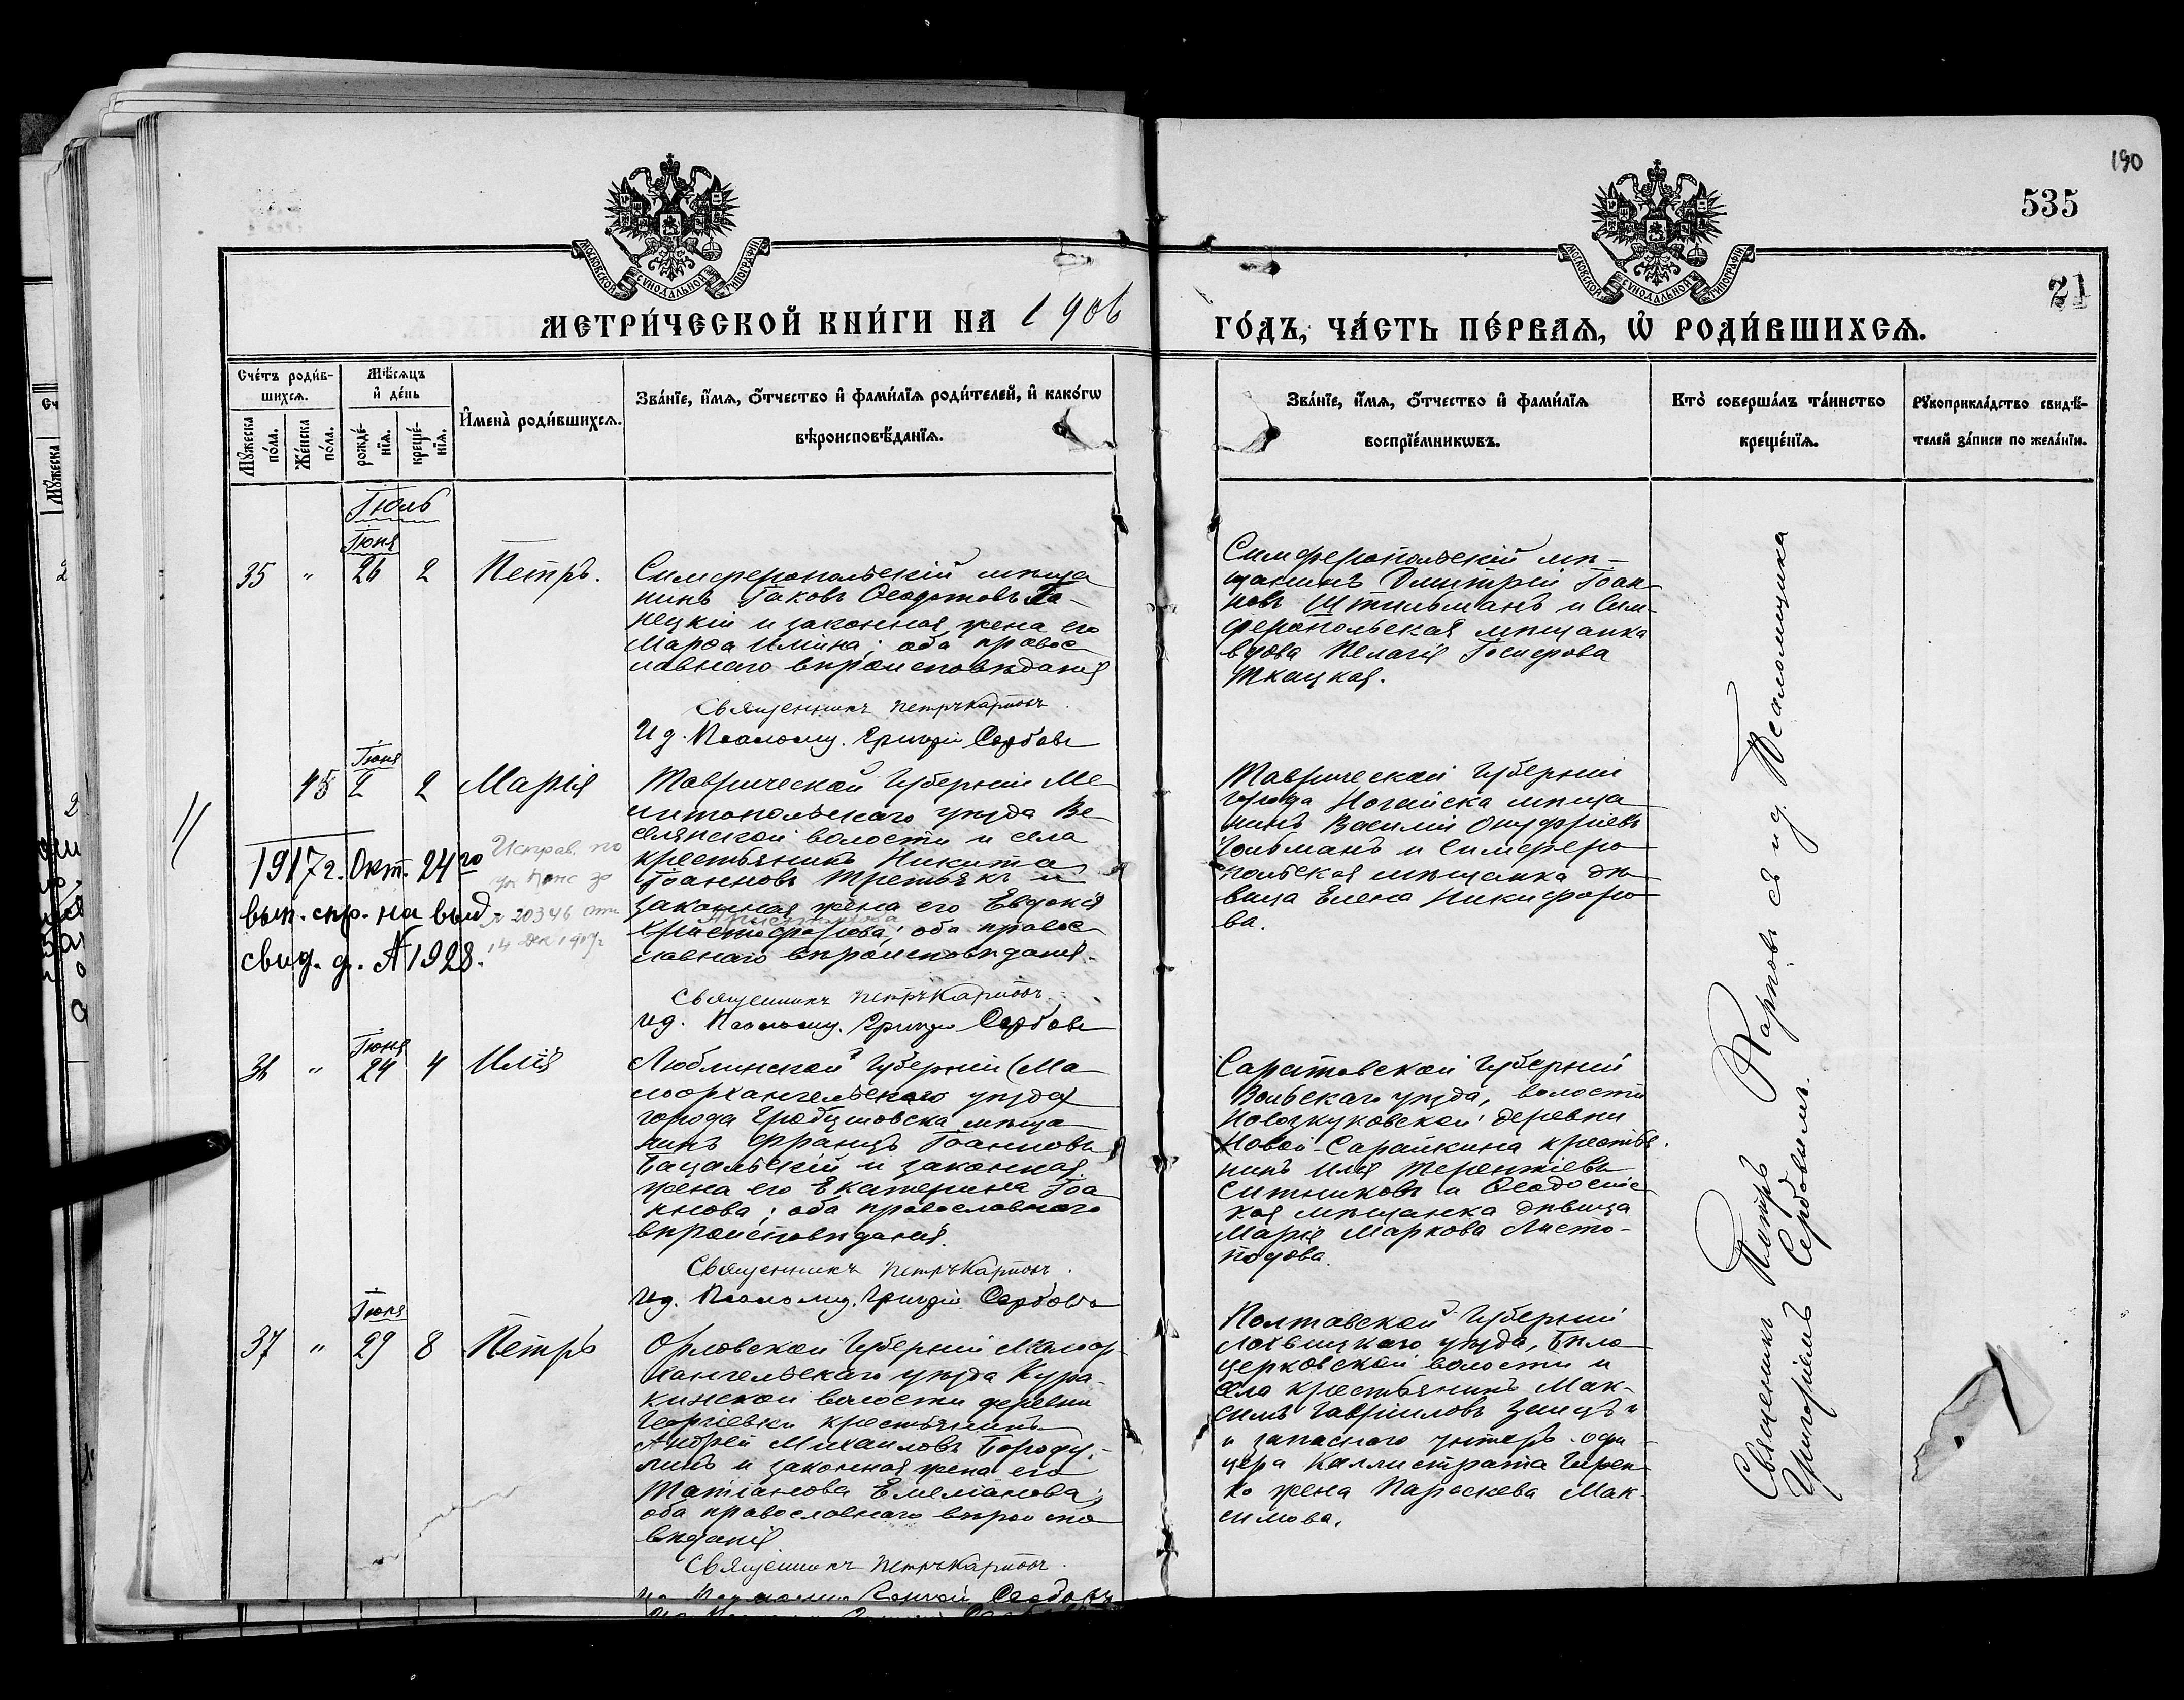 190
535
21
МОСКОВСКОЙ СѴНОДАЛЬНОЙ ТИПОГРАФІИ
МОСКОВСКОЙ СѴНОДАЛЬНОЙ ТИПОГРАФІИ
МЕТРИ́ЧЕСКОЙ КНИ́ГИ НА 1906
ГО́ДЪ, ЧА́СТЬ ПЕ́РВАѦ, Ѡ҆ РОДИ́ВШИХСѦ.
Сче́тъ роди́в-
шихсѧ.
Мꙋжеска по́ла.
Же́нска по́ла.
Мѣ́сѧцъ и҆ де́нь
рожде́-нїѧ.
креще́-нїѧ.
И҆мена̀ роди́вшихсѧ.
Зва́нїе, и҆́мѧ, ѻ҆́тчество и҆ фами́лїѧ роди́телей, и҆ како́гѡ
вѣроисповѣ́данїѧ.
Зва́нїе, и҆́мѧ, ѻ҆́тчество и҆ фами́лїѧ
воспрїе́мникѡвъ.
Кто̀ соверша́лъ та́инство
креще́нїѧ.
Рꙋкоприкла́дство свидѣ́-
телей за́писи по жела́нїю.
Іюль
Іюня
35 " 26 2 Петръ.
Симферопольскій мѣща
нинъ Іаковъ Ѳеодотовъ
нецкій и законная жена его
Марѳа Ильина; оба правос
лавнаго вѣроисповѣданія
Священникъ Петръ Карповъ
И д. Псаломщ. Григорій Сербовъ
Симферопольскій мѣ-
щанинъ Дмитрій Іоан
новъ Штильманъ и Сим-
феропольская мѣщанка
вдова Пелагія Іосифова
Ткацкая.
Іюня
45 2 2 Марія
Таврической Губерніи Ме
литопольскаго уѣзда Ве
селянской волости и села
крестьянинъ Никита
Іоанновъ Третьякъ и
законная жена его Евдокія
Христофорова; оба правос
лавнаго вѣроисповѣданія.
Священникъ Петръ Карповъ
ид. Псаломщ. Григорій Сербовъ
1917 г. Окт. 24го
вып. спр. на выд
свид. д. № 1928.
Исправ. по
№ 20346 отъ
14 Дек 1907 г
Таврической Губерніи
города Ногайска мѣща
нинъ Василій Онуфріевъ
Гольманъ и Симферо
польская мѣщанка дѣ
вица Елена Никифоро
ва.
Іюня
36 " 24 4 Илія
Люблинской Губерніи (Ма
лоархангельскаго уѣзда)
города мѣща
нинъ Францъ Іоанновъ
Бацальскій и законная
жена его Екатерина Іоа
ннова; оба православнаго
вѣроисповѣданія.
Священникъ Петръ Карповъ.
Ид. Псаломщ. Григорій Сербовъ
Саратовской Губерніи
Вольскаго уѣзда, волости
Новожуковской деревни
Новой-Сарайкина крестья
нинъ Илія Терентіевъ
Ситниковъ и Ѳеодосійс
кая мѣщанка дѣвица
Марія Маркова Листо-
подова.
Іюня
37 " 29 8 Петръ
Орловской Губерніи Малоар-
хангельскаго уѣзда Кура-
кинской волости деревни
Георгіевки крестьянинъ
Андрей Михаиловъ Бороду-
линъ и законная жена его
Татіанова Емеліанова;
оба православнаго вѣроиспо
вѣданія
Священникъ Петръ Карповъ.
Полтавской Губерніи
Лохвицкаго уѣзда, Бѣло
церковской волости и
села крестьянинъ Мак-
симъ Гавріиловъ Заицъ и
и запаснаго унтеръ-офи
цера Каллистрата
ко жена Параскева Мак-
симова.
Священникъ Петръ Карповъ съ и д. Псаломщика
Григоріемъ Сербовымъ.